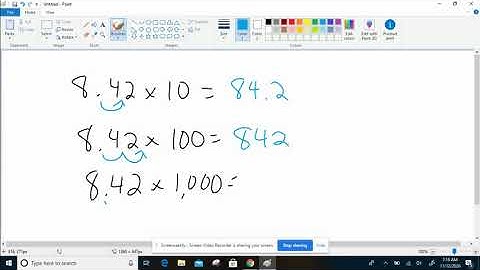 Untitled - Paint
File Home View
Paste
Select
Crop
Resize
Rotate
Brushes
Shapes
Outline
Fill
Size
Color 1
Color 2
Edit colors
Edit with Paint 3D
Product alert
Clipboard Image Tools Shapes Colors
8.42 x 10 = 84.2
8.42 x 100 = 842
8.42 x 1,000 =
Screencastify - Screen Video Recorder is sharing your screen.
Stop sharing
Hide
100%
Type here to search
7:16 AM